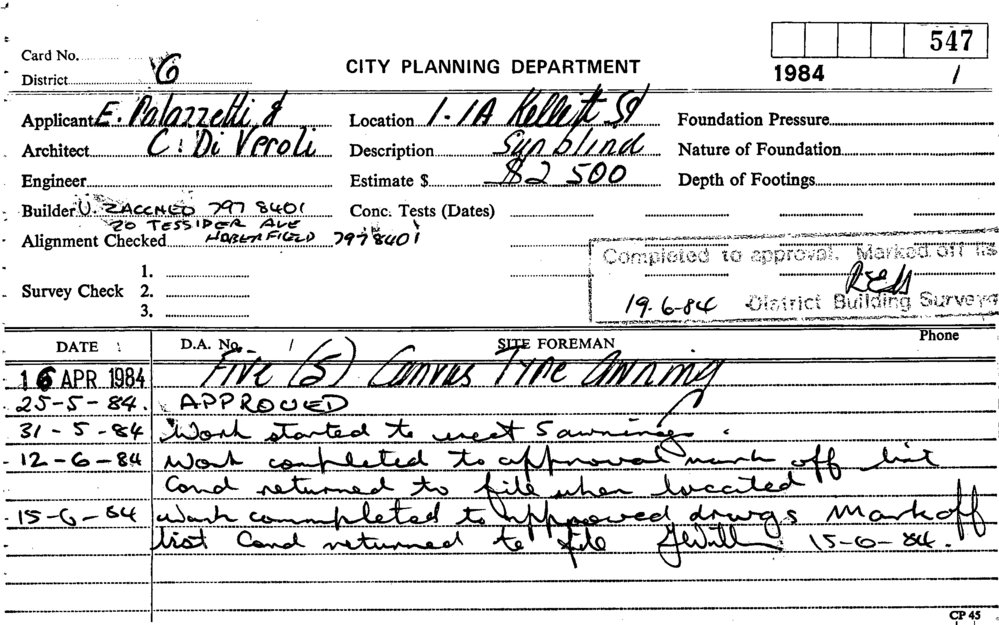 547
Card No.
District 6
CITY PLANNING DEPARTMENT
1984 1
Applicant E. Palazzetti &
Architect C. Di Veroli
Engineer
Builder U. ZACCHEO 797 8401
20 TESSIDER AVE
Alignment Checked HABERFIELD 797 8401
Survey Check 1.
2.
3.
Location 1-1A Kellett St
Description Sun blind
Estimate $ $2 500
Conc. Tests (Dates)
Foundation Pressure
Nature of Foundation
Depth of Footings
Completed to approval. Marked off lis
19.6-84 District Building Surveyo
DATE D.A. No. / SITE FOREMAN Phone
16 APR 1984 Five (5) Canvas Type Awning
25-5-84. APPROVED
31-5-84 Work started to erect 5 awnings.
12-6-84 Work completed to approval mark off list
Card returned to file when located
15-6-84 Work completed to approved drwgs Mark off
list Card returned to file 15-6-84.
CP 45